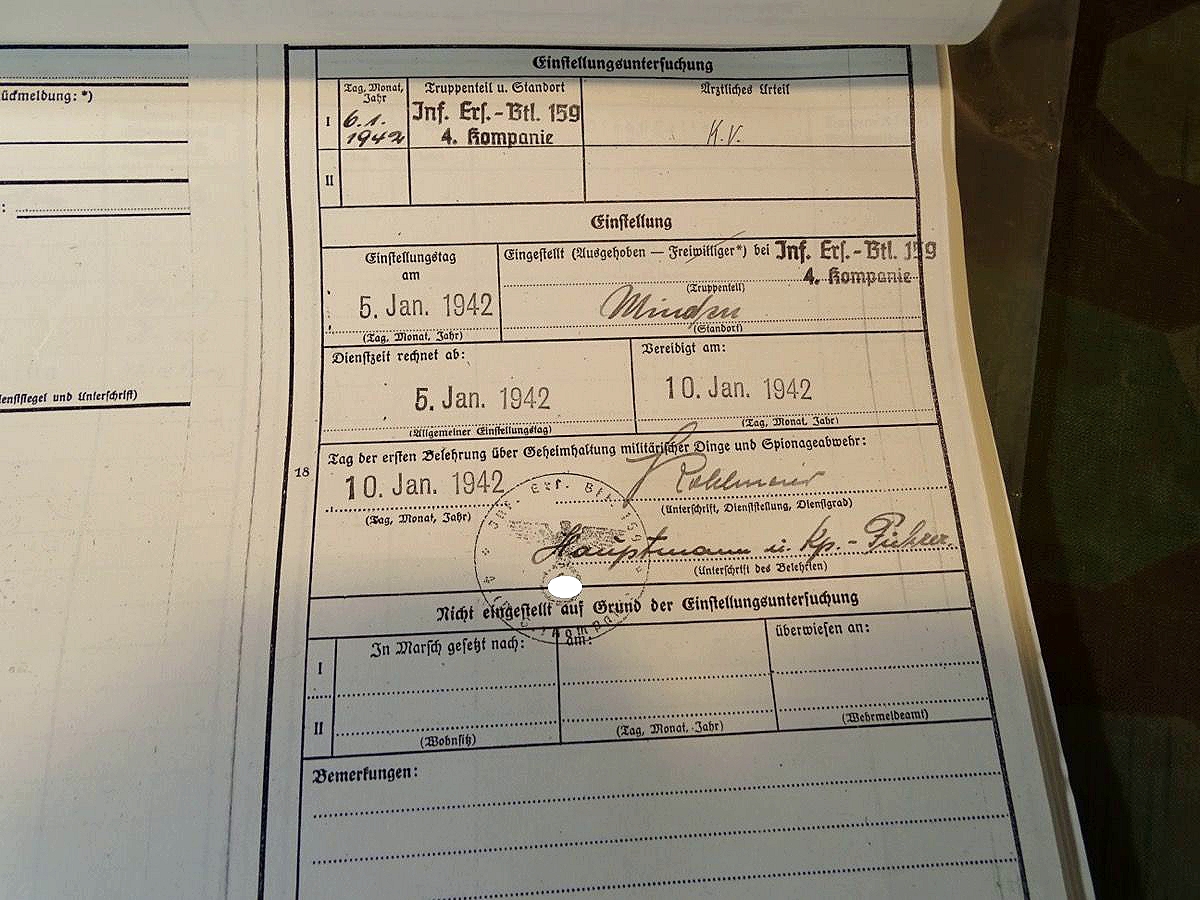 ückmeldung: *)
:
ienstsiegel und Unterschrift)
18
Einstellungsuntersuchung
Tag, Monat, Jahr
Truppenteil u. Standort
Ärztliches Urteil
I
6.1.
1942
Inf. Ers.-Btl. 159
4. Kompanie
K.V.
II
Einstellung
Einstellungstag
am
5. Jan. 1942
(Tag, Monat, Jahr)
Eingestellt (Ausgehoben — Freiwilliger*) bei Inf. Ers.-Btl. 159
4. Kompanie
(Truppenteil)
Minden
(Standort)
Dienstzeit rechnet ab:
5. Jan. 1942
(Allgemeiner Einstellungstag)
Vereidigt am:
10. Jan. 1942
(Tag, Monat, Jahr)
Tag der ersten Belehrung über Geheimhaltung militärischer Dinge und Spionageabwehr:
10. Jan. 1942
(Tag, Monat, Jahr)
(Unterschrift, Dienststellung, Dienstgrad)
Hauptmann u. Kp.-Führer.
(Unterschrift des Belehrten)
Inf. Ers. Btl. 159
Nicht eingestellt auf Grund der Einstellungsuntersuchung
In Marsch gesetzt nach:
am:
überwiesen an:
I
II
(Wohnsitz)
(Tag, Monat, Jahr)
(Wehrmeldeamt)
Bemerkungen: